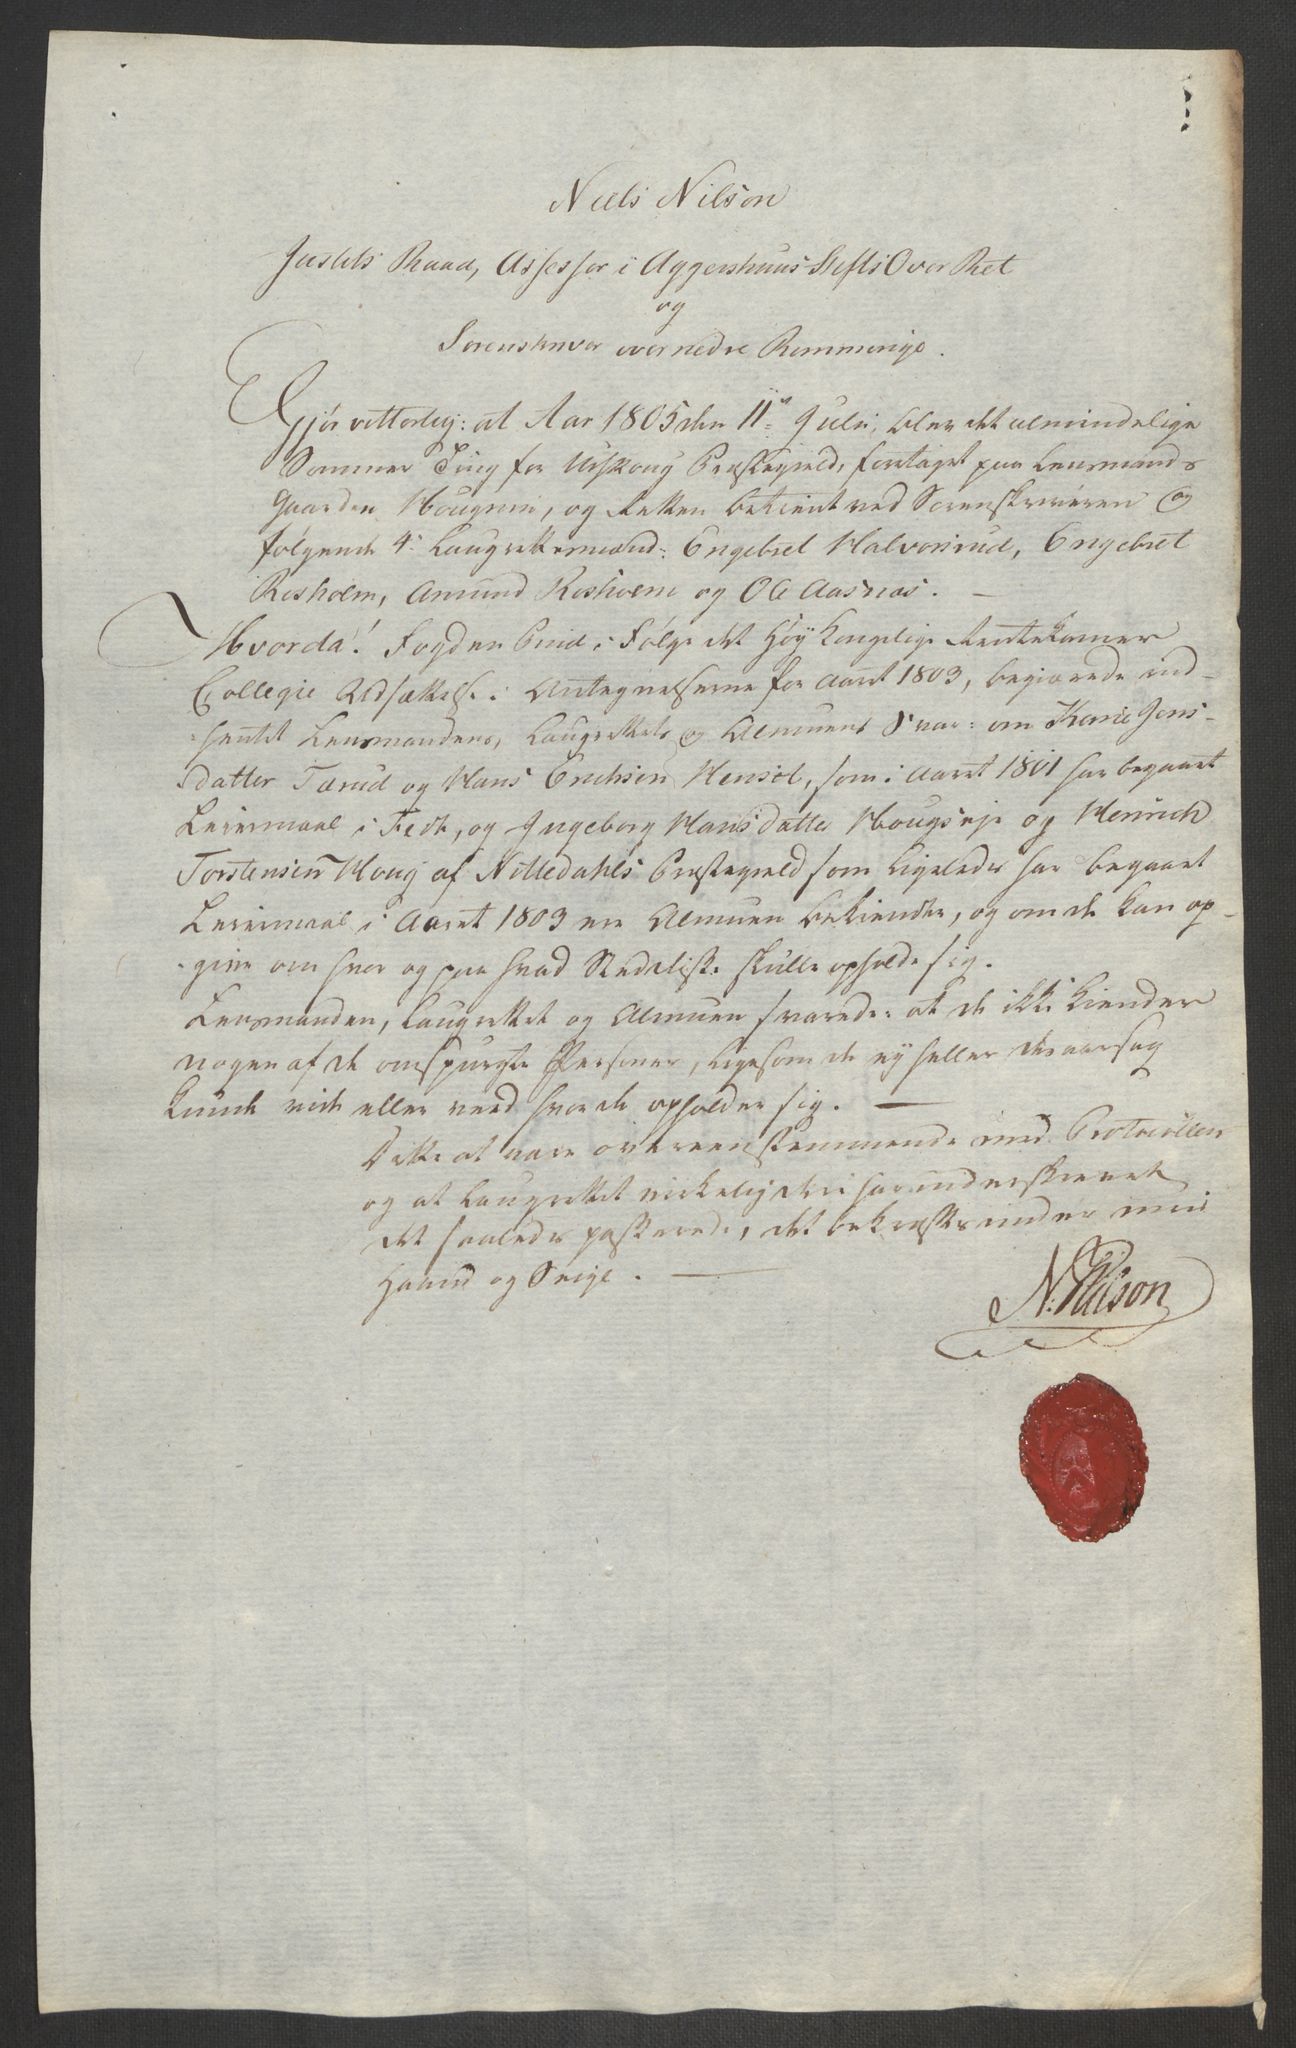 Niels Nilson
Justits Raad, Assessor i Aggershuus Stifts Over Ret
og
Sorenskriver over nedre Rommerige.
Gjør vitterlig: at Aar 1805 den 11te Julii, blev det almindelige
Sommer Ting for Urskoug Præstegield, foretaget paa Lensmands
Gaarden Hougnem, og Retten betient ved Sorenskriveren og
følgende 4re Laugrettesmænd: Engebret Halvorsrud, Engebret
Risholm, Amund Risholm og Ole Aasnæs. —
Hvorda! Fogden i Følge det Høy Kongelige Rentekamer
Collegie Udsættelse i Antegnelserne for Aaret 1803, begiærede ind-
-hentet Lensmandens, Laugrettets og Almuens Svar: om Karie Jens-
datter Tærud og Hans Erichsen Hensøl, som i Aaret 1801 har begaaet
Leiermaal i Fedt, og Ingeborg Hansdatter Hougseje og Henrich
Torstensen Houg af Nittedahls Præstegield som ligeledes har begaaet
Leiermaal i Aaret 1803 ere Almuen bekiendte, og om de kan op-
-give om hvor og paa hvad Stæd disse skulle opholde sig.
Lensmanden, Laugrettet og Almuen svarede: at de ikke kiender
nogen af de omspurgte Personer, ligesom de ey heller desaarsag
kunde vide eller veed hvor de opholder sig. —
Dette at være overeensstemmende med Protocollen
og at Laugrettet virkelig deri har underskrevet
det saaledes passerede, det bekræftes under min
Haand og Seigl. —
N. Nilson